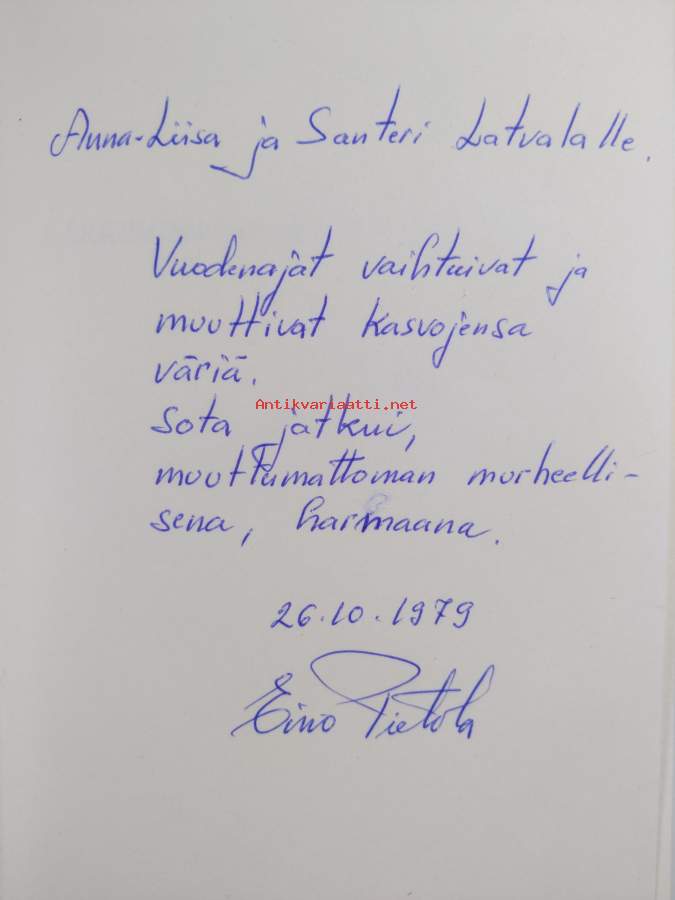 Anna-Liisa ja Santeri Latvalalle.
Vuodenajat vaihtuivat ja
muuttivat kasvojensa
väriä.
Antikvariaatti.net
Sota jatkui,
muuttumattoman murheelli-
sena, harmaana.
26.10.1979
Eino Pietola